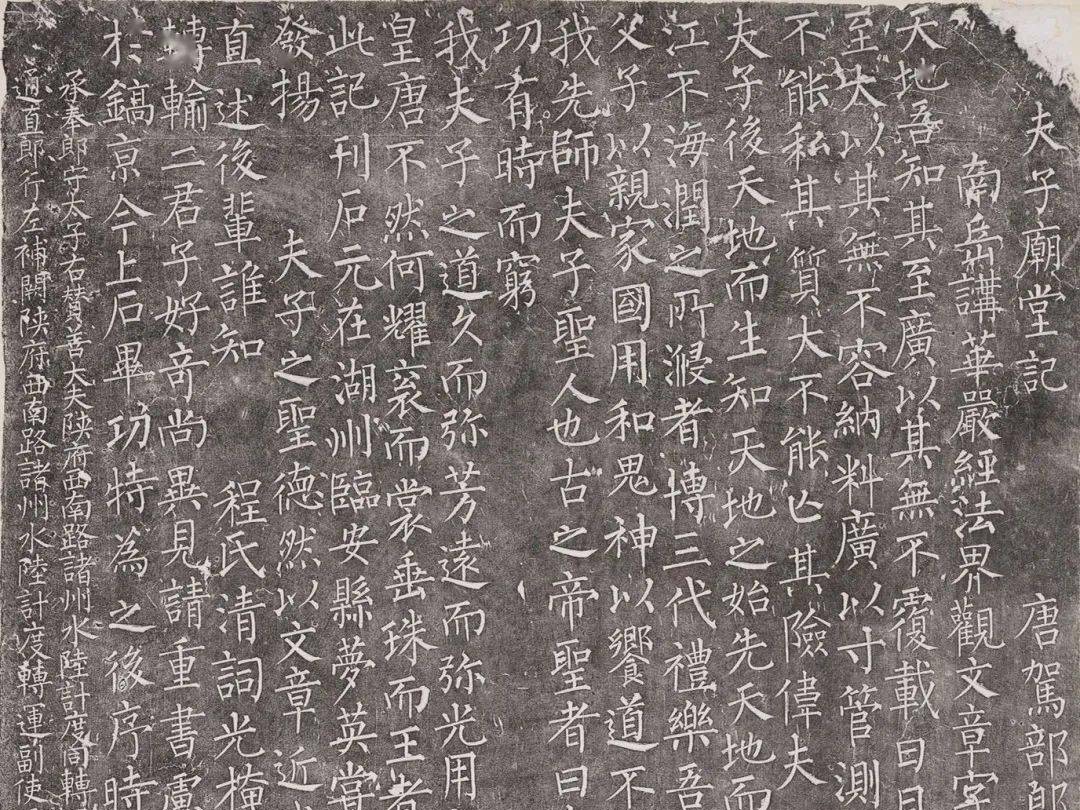 夫子廟堂記 唐駕部郎
南岳講華嚴經法界觀文章字
天地吾知其至廣以其無不覆載日
至大以其無不容納料廣以寸管測
不能私其質大不能亡其險偉夫
夫子後天地而生知天地之始先天地而
江不海潤之所浸者博三代禮樂吾
父子以親家國用和鬼神以饗道不
我先師夫子聖人也古之帝聖者曰
功有時而窮
我夫子之道久而弥芳遠而弥光用
皇唐不然何耀衮而裳垂珠而王者
此記刊石元在湖州臨安縣夢英嘗
發揚 夫子之聖德然以文章近
直述後輩誰知 程氏清詞光掩
轉輸二君子好奇尚異見請重書
於鎬京今上石畢功特為之後序時
承奉郎守太子右贊善大夫陝府西南路諸州水陸計度同轉
通直郎行左補闕陝府西南路諸州水陸計度轉運副使